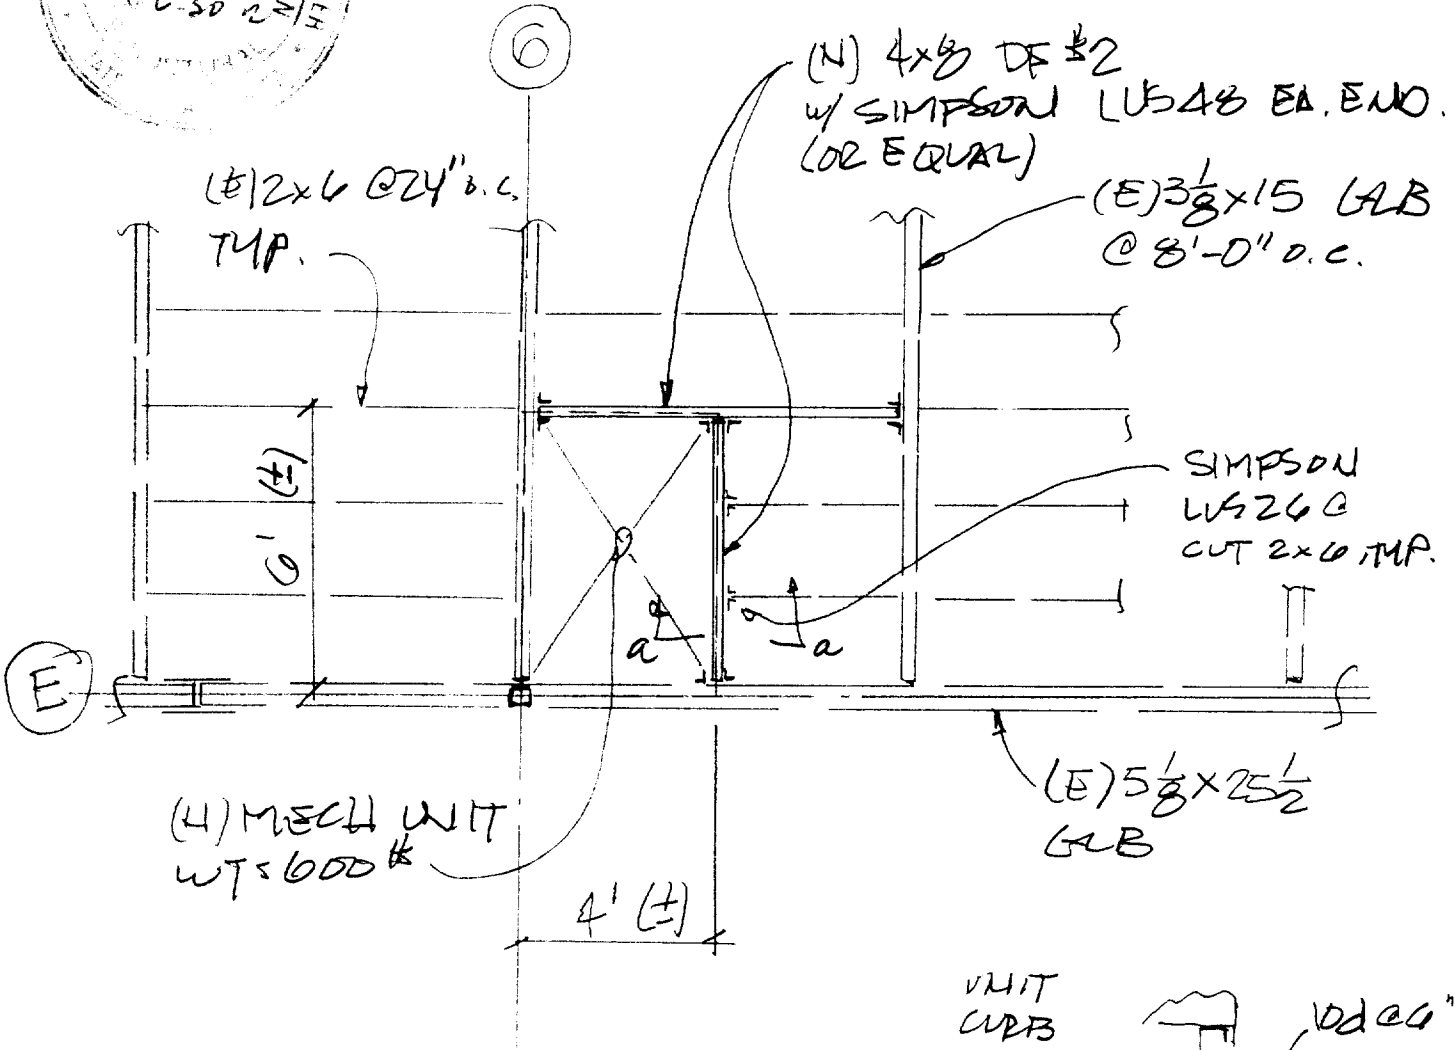 6
(N) 4x8 DF #2
w/ SIMPSON LUS48 EA. END.
(OR EQUAL)
(E) 2x6 @24" o.c.
TYP.
(E) 3 1/8 x 15 GLB
@ 8'-0" o.c.
6' (±)
SIMPSON
LUS26 @
CUT 2x6, TYP.
a
a
E
(E) 5 1/8 x 25 1/2
GLB
(N) MECH UNIT
WT ≤ 600 #
4' (±)
UNIT
CURB
10d @ 6"